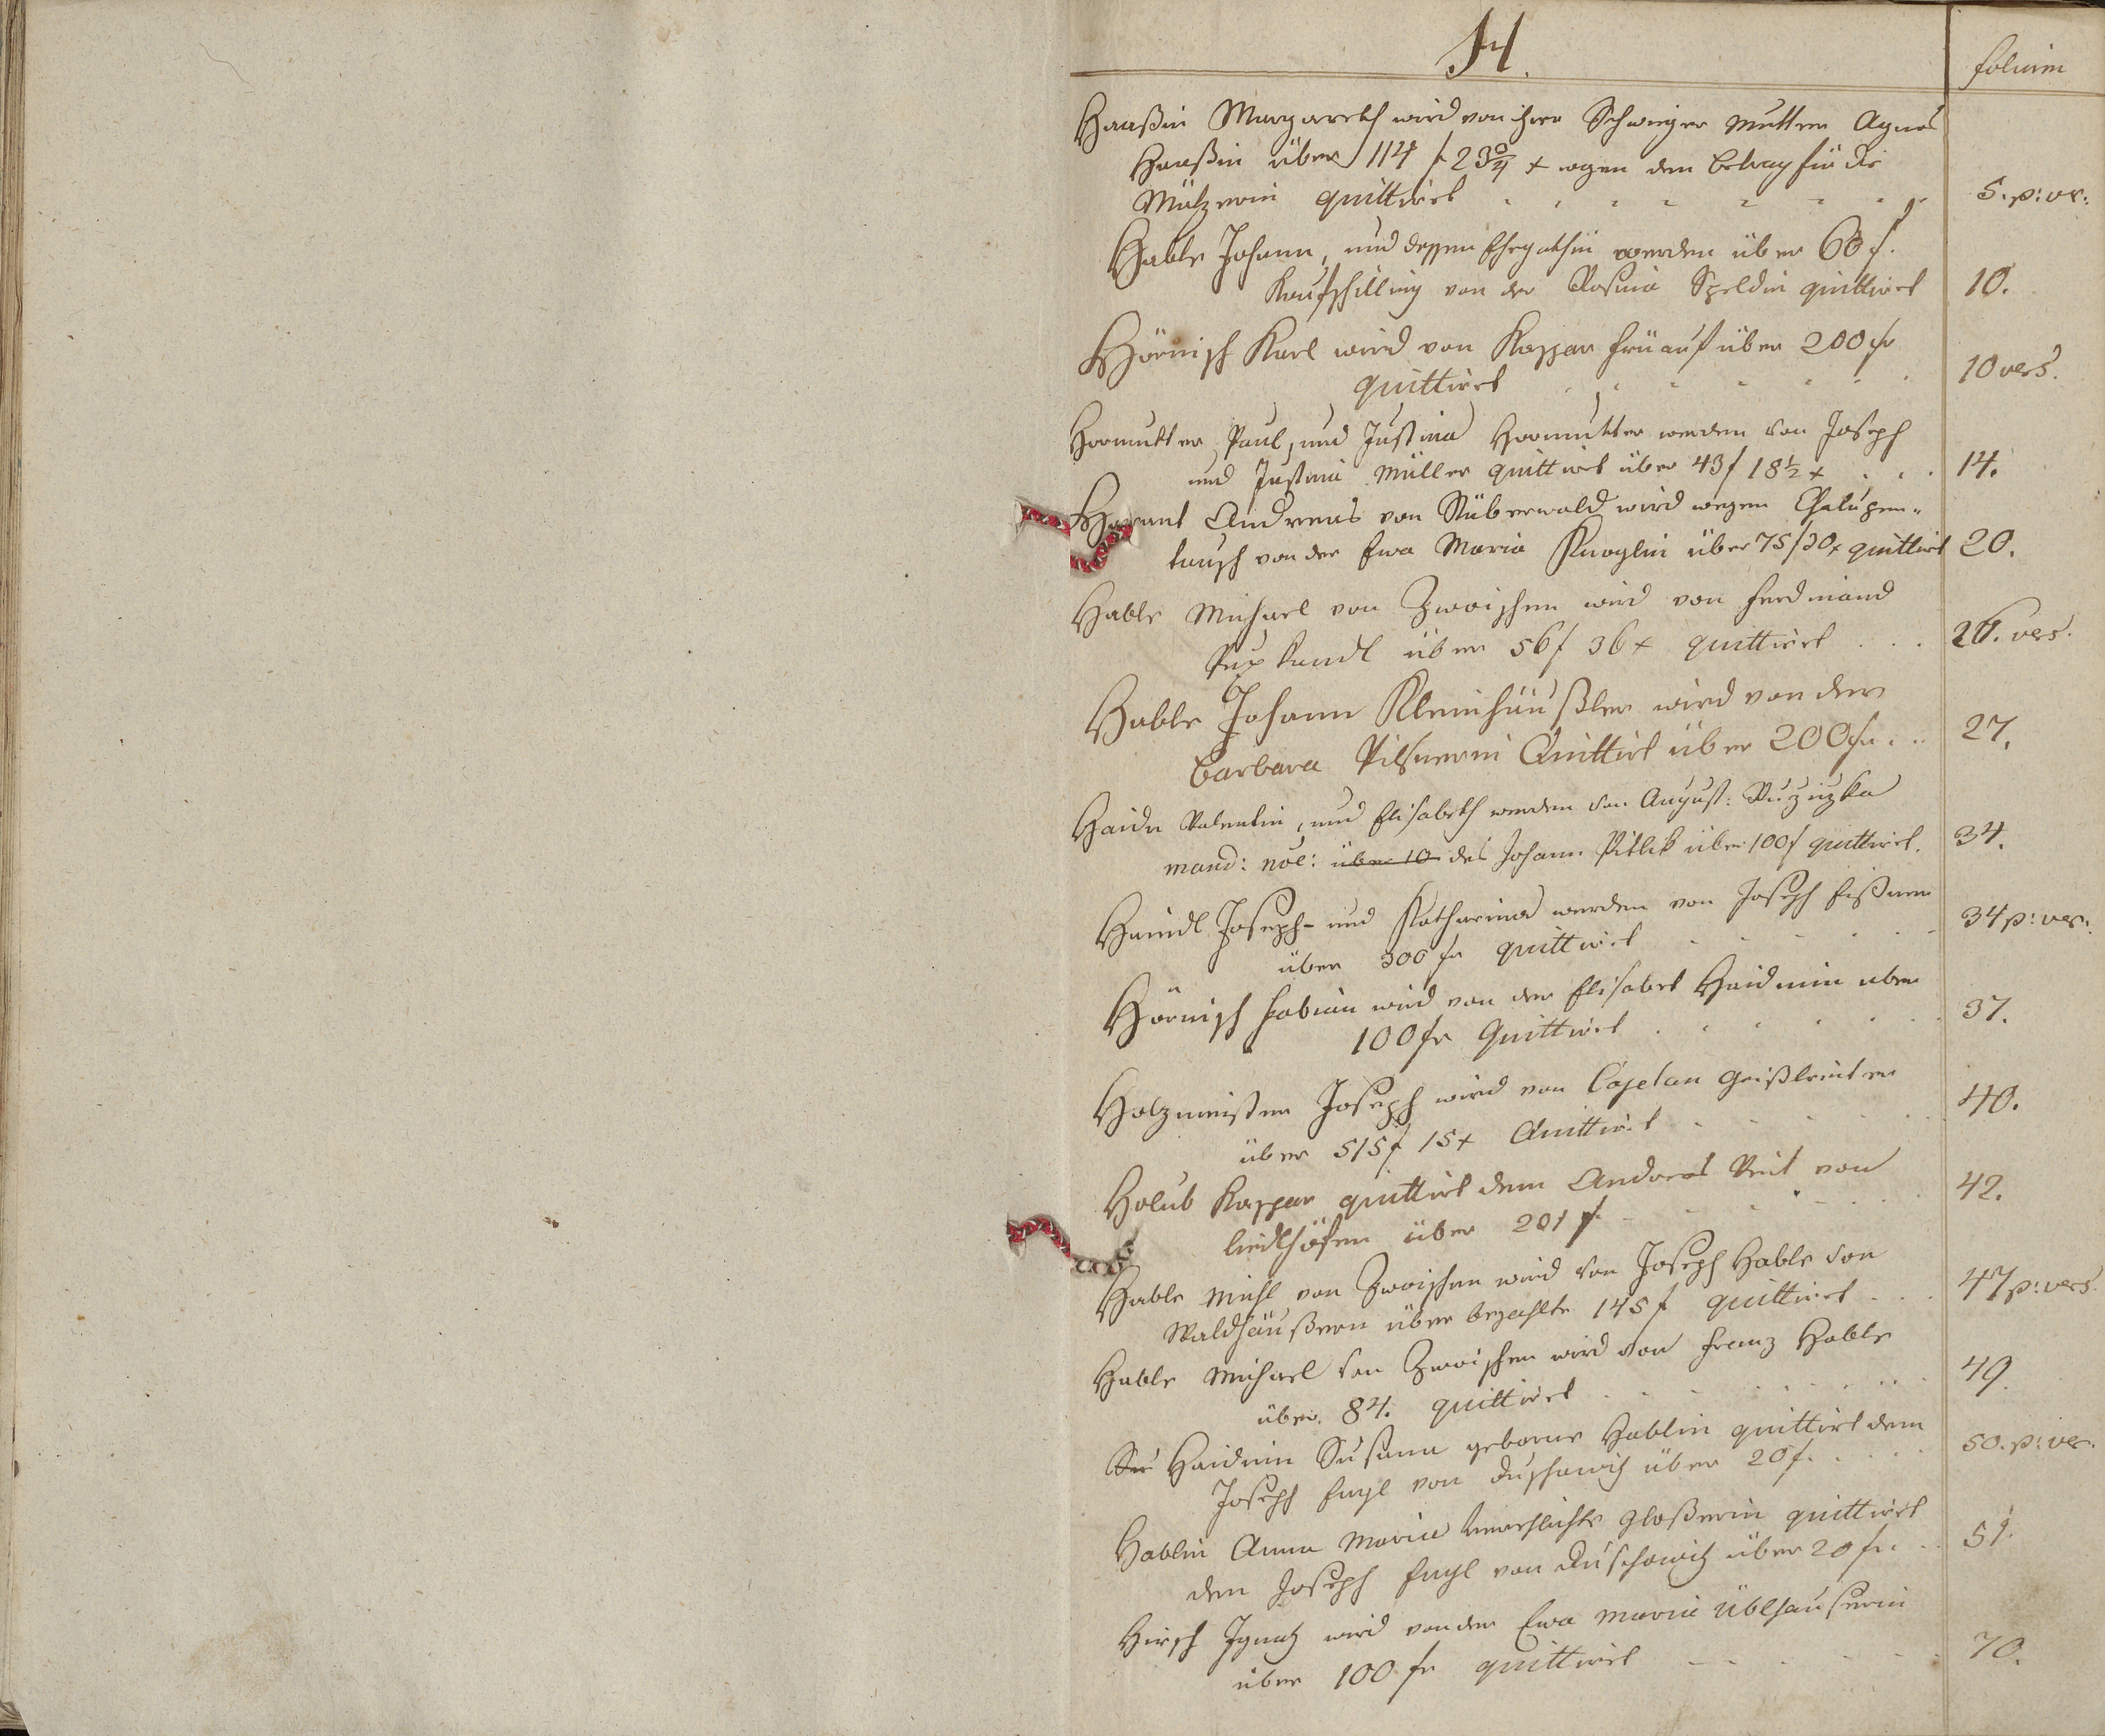 H.
folium
Haußin Margareth wird von ihrer Schwieger Mutter Agnes
Haußin über 114 f 23 x wegen dem betrag für die
quittiret 5. p: ver:
Hable Johann, und dessen Ehegathin werden über 60 f.
Kaufschilling von der Rosina Speldin quittiret 10.
Hörnisch Karl wird von Kaspar Früauf über 200 fr
quittiret 10 vers.
Hormutter Paul, und Justina Hormutter werden von Joseph
und Justina Müller quittirt über 43 f 18½ x 14.
Andreas von Stüberwald wird wegen Chalupen-
tausch von der Ewa Maria über 75 f 30 x quittirt 20.
Hable Michael von Zwoischen wird von Ferdinand
über 56 f 36 x quittiret 26. vers.
Hable Johann Kleinhäußler wird von der
Barbara Pilsnerin Quittirt über 200 fr. 27.
Haidn Valentin, und Elisabeth werden von August: Ruziczka
mand: noe: über 10 des Johann Pitlik über 100 f quittiret. 34.
Haindl Joseph- und Katharina werden von Joseph Eißner
über 300 fr quittiret 34 p: ver:
Hörnisch Fabian wird von der Elisabet Haidnin über
100 fr Quittiret 37.
Holzmeister Joseph wird von Cajetan Geißlreiter
über 515 f 15 x Quittiret 40.
Holub Kaspar quittirt dem Andreas Veit von
über 201 f 42.
Hable Michl von Zwoischen wird von Joseph Hable von
Waldhäußern über bezahlte 145 f quittiret 47 p: vers.
Hable Michael von Zwoischen wird von Franz Hable
über 84. quittiret 49.
Su Haidnin Susanna geborne Hablin quittirt dem
Joseph Engl von Duschowitz über 20 f. 50. p: ver.
Hablin Anna Maria verehlichte Glaßerin quittiret
den Joseph Engl von Duschowitz über 20 fr. 51.
Hirsch Ignatz wird von der Ewa Maria Üblhauserin
über 100 fr quittiret 70.